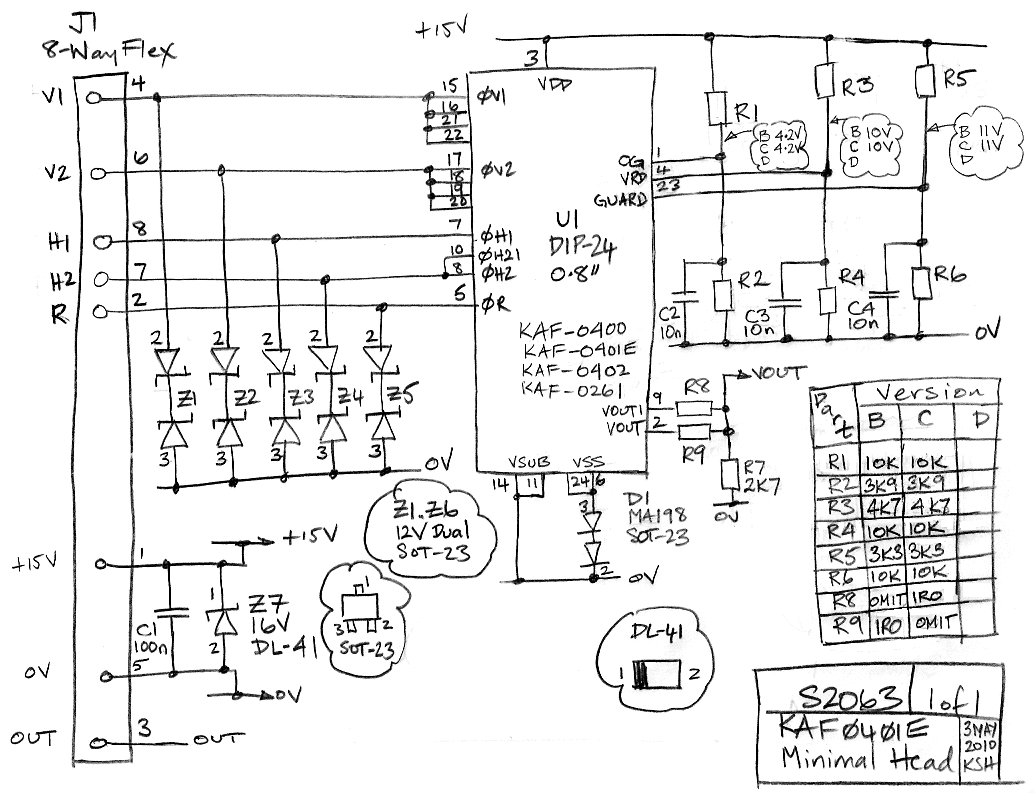 J1
8-Way Flex
+15V
V1
4
V2
6
H1
8
H2
7
R
2
3
VDD
15
16
21
22
ØV1
17
18
19
20
ØV2
7
ØH1
10
ØH21
8
ØH2
5
ØR
U1
DIP-24
0.8"
KAF-0400
KAF-0401E
KAF-0402
KAF-0261
OG
1
VRD
4
GUARD
23
VOUT1
9
VOUT
2
VSUB
14
11
VSS
24
6
R1
B 4.2V
C 4.2V
D
R3
B 10V
C 10V
D
R5
B 11V
C 11V
D
C2
10n
R2
C3
10n
R4
C4
10n
R6
0V
R8
R9
VOUT
R7
2K7
0V
2
2
2
2
2
Z1
Z2
Z3
Z4
Z5
3
3
3
3
3
0V
Z1..Z6
12V Dual
SOT-23
D1
MA198
SOT-23
3
2
0V
+15V
1
+15V
C1
100n
1
2
Z7
16V
DL-41
0V
5
0V
OUT
3
OUT
1
3
2
SOT-23
DL-41
1
2
Part
Version
B C D
R1 10K 10K
R2 3K9 3K9
R3 4K7 4K7
R4 10K 10K
R5 3K3 3K3
R6 10K 10K
R8 OMIT 1R0
R9 1R0 OMIT
S2063 1 of 1
KAF0401E
Minimal Head
3MAY
2010
KSH